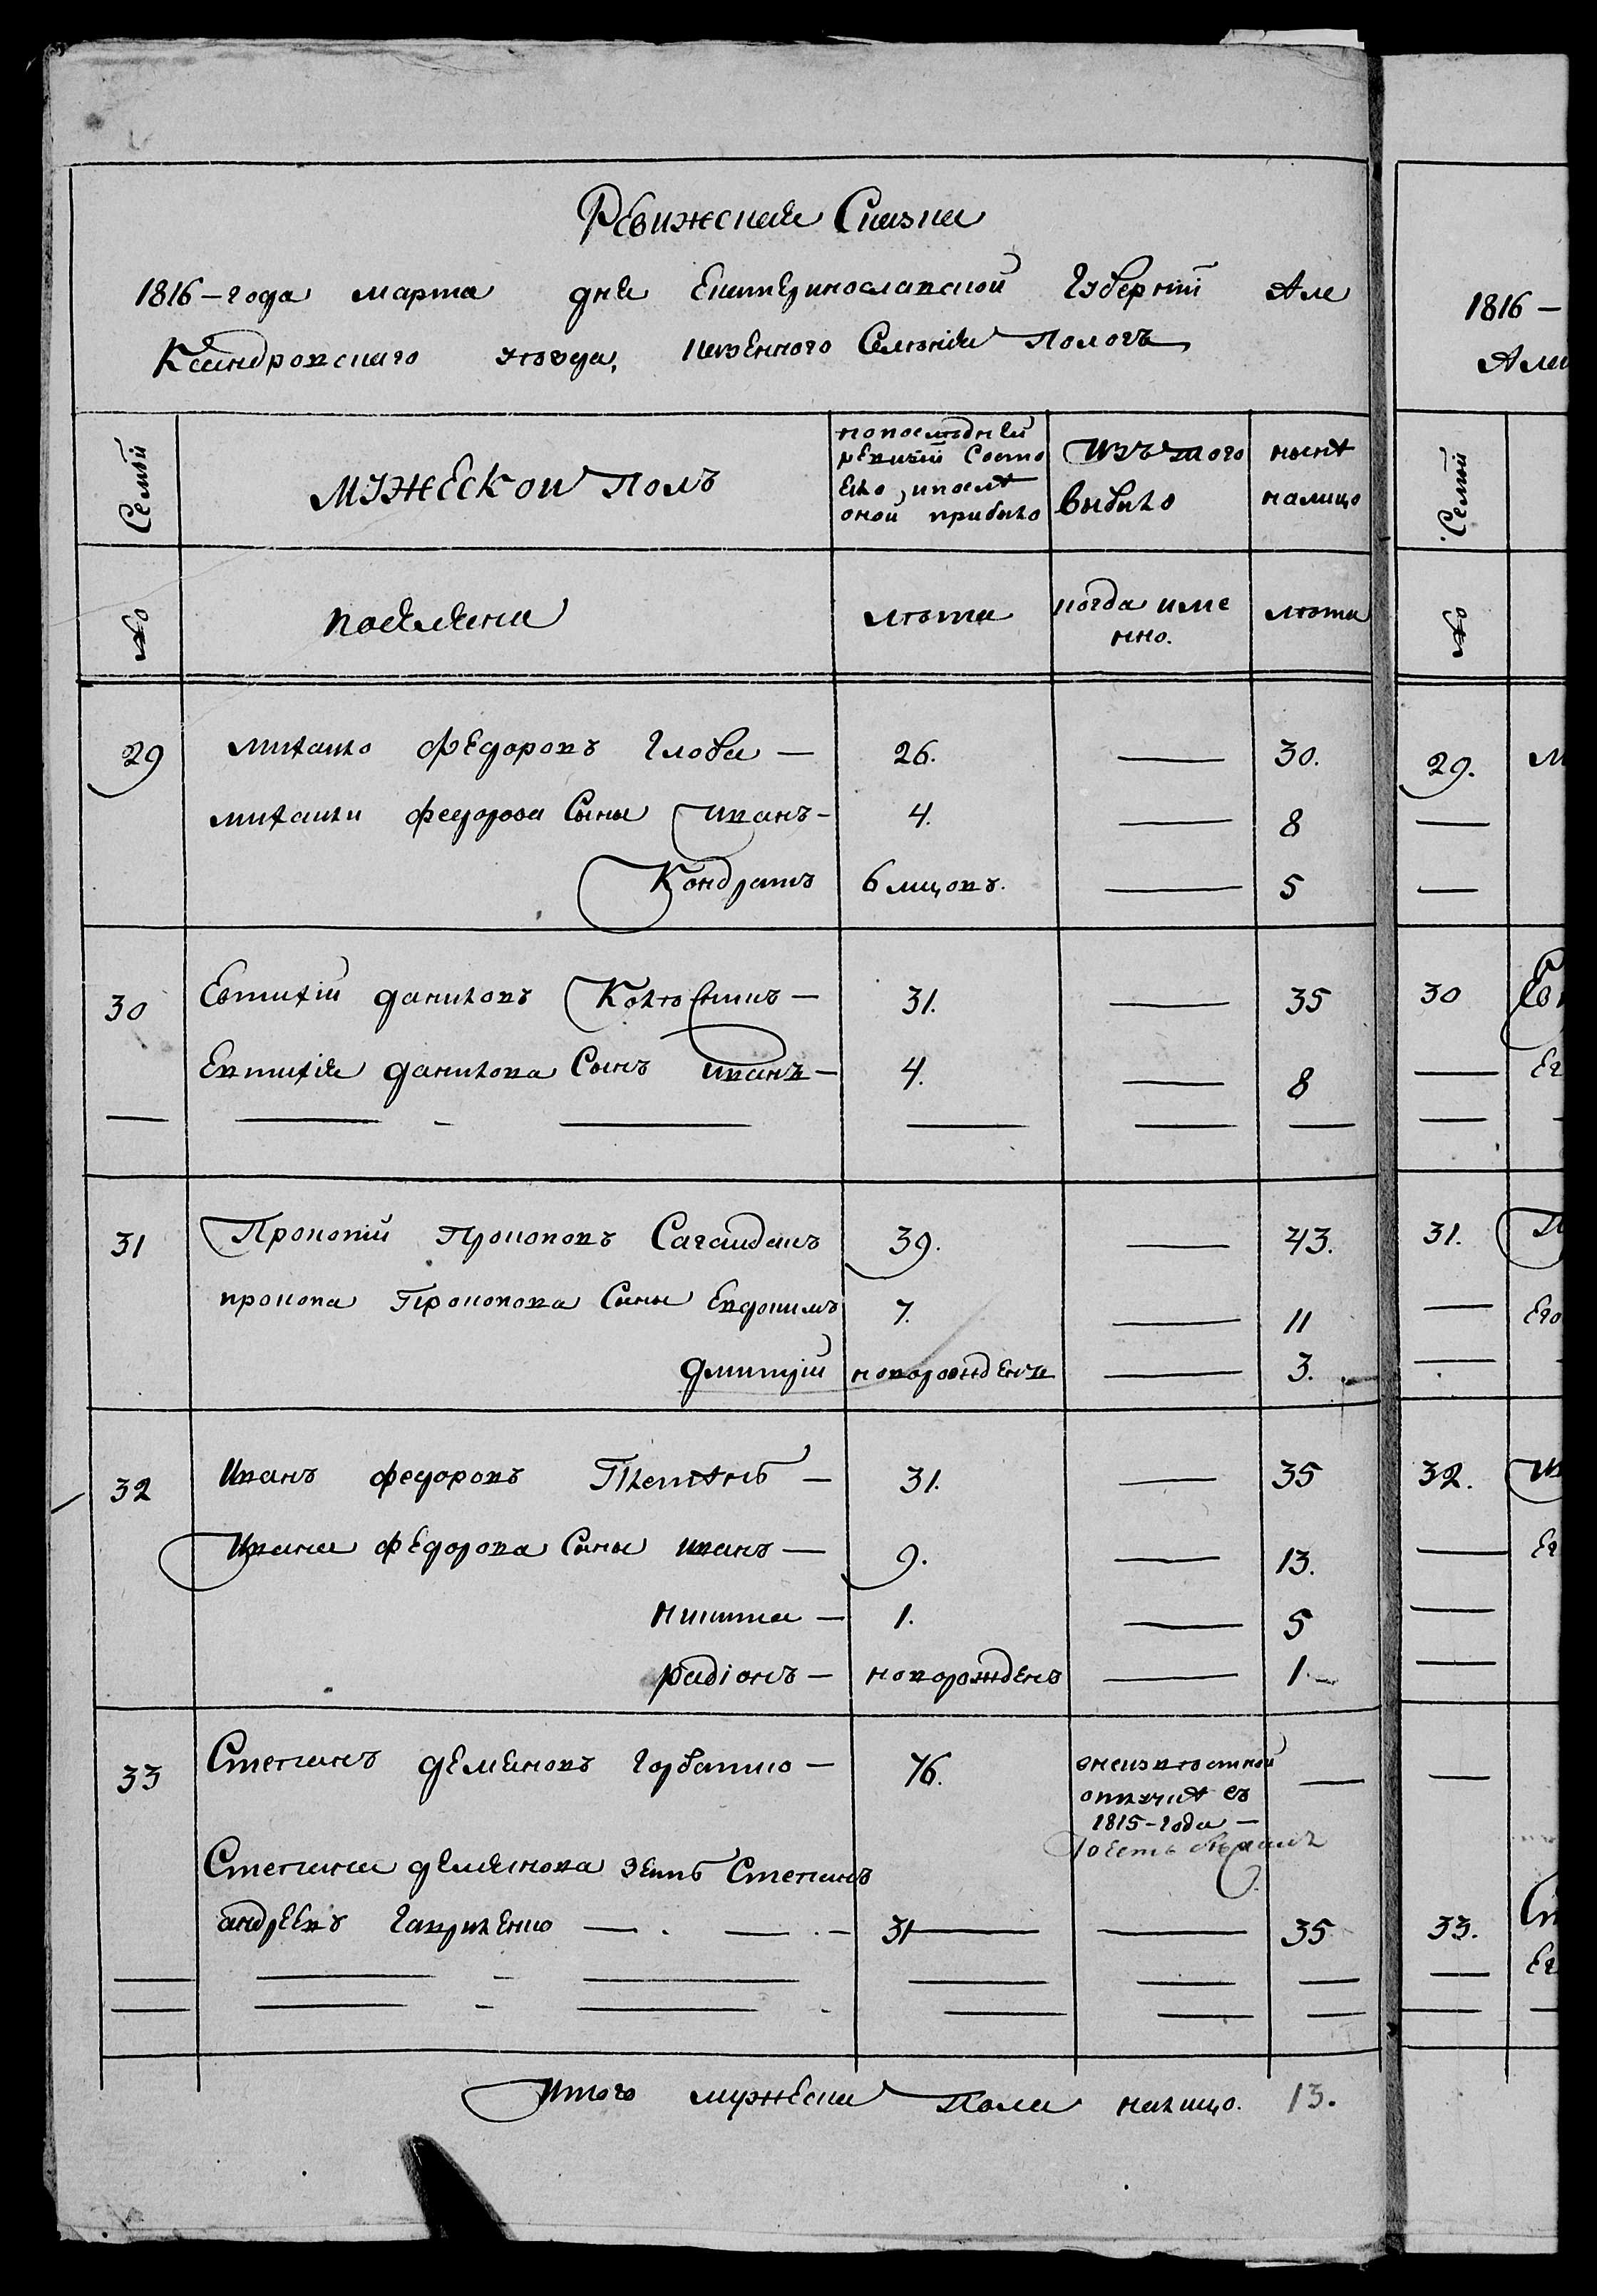 Ревижская Сказка
1816-года марта дня Екатеринославской Губерний Але
Ксандровскаго уъзда, казенного Селѣния Пологъ
Семьи
мужеской полъ
попоследней ревизий состо яло, и послѣ оной прибыло
Изъ того выбыло
нынѣ налицо
№
поселяня
лѣта
когда име нно.
лѣта
29 михайло Федоровъ Глова — 26. — 30.
михайли Федорова Сыны Иванъ — 4. — 8
Кондратъ 6 мцовъ. — 5
30 Евтихiй Даниловъ — 31. — 35
Евтихiя Данилова Сынъ иванъ — 4. — 8
31 Прокопiй Прокоповъ Сагайдакъ 39. — 43.
прокопа Прокопова Сыны Евдокимъ 7. — 11
Дмитрiй новорожденъ — 3.
32 Иванъ Федоровъ — 31. — 35
Ивана Федорова Сыны иванъ — 9. — 13.
никита — 1. — 5
радiонъ — новорожденъ — 1 —
33 Степанъ Демяновъ Горбатко — 76. внеизвѣстной отлучкѣ съ 1815-года — —
Степана Демянова зять Степанъ
андреевъ Гавриленко — . — . — 31 — — 35
Итого мужеска Пола налицо. 13.
1816 —
Але
Семьи
№
29. М
—
—
30 Ев
— Ег
—
31. П
— Его
—
32. Ив
— Ег
—
—
—
33. Ст
— Ег
—